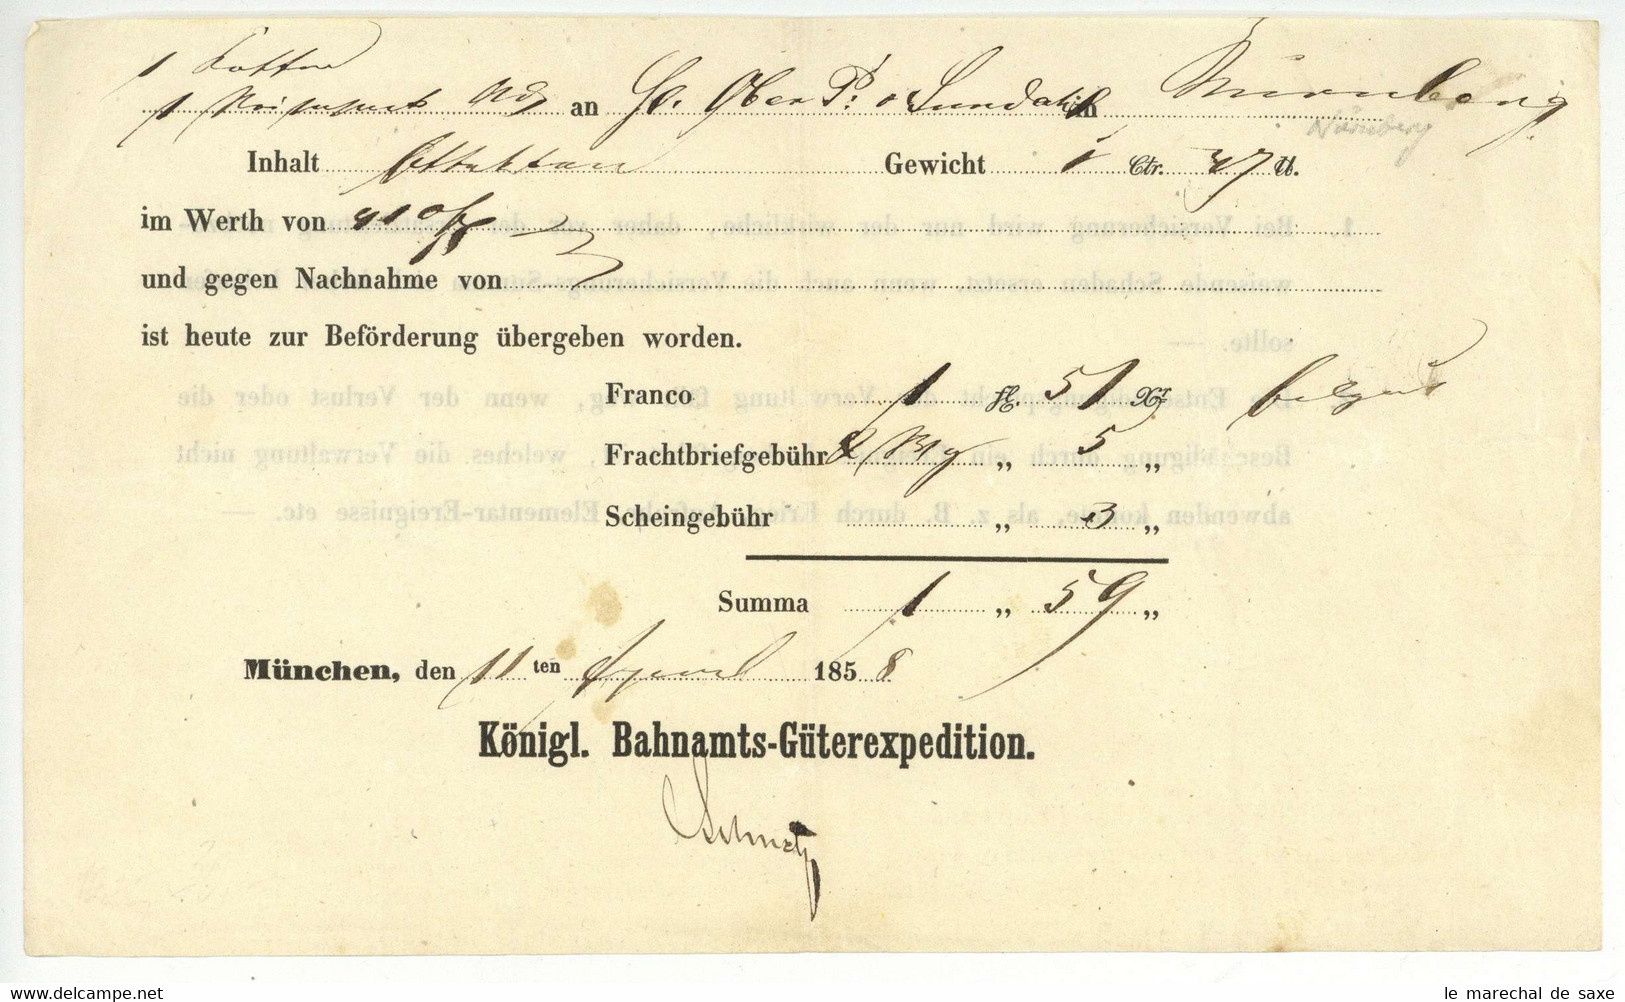 1 Koffer
1 an H. Ober P: v. in Nürnberg
Nürnberg
Inhalt Effekten Gewicht 1 Ctr. 47 ℔.
im Werth von 410 f
und gegen Nachnahme von
ist heute zur Beförderung übergeben worden.
Franco 1 fl. 51 Xr
Frachtbriefgebühr „ 5 „
Scheingebühr „ 3 „
Summa 1 „ 59 „
München, den 11 ten April 1858
Königl. Bahnamts-Güterexpedition.
le marechal de saxe